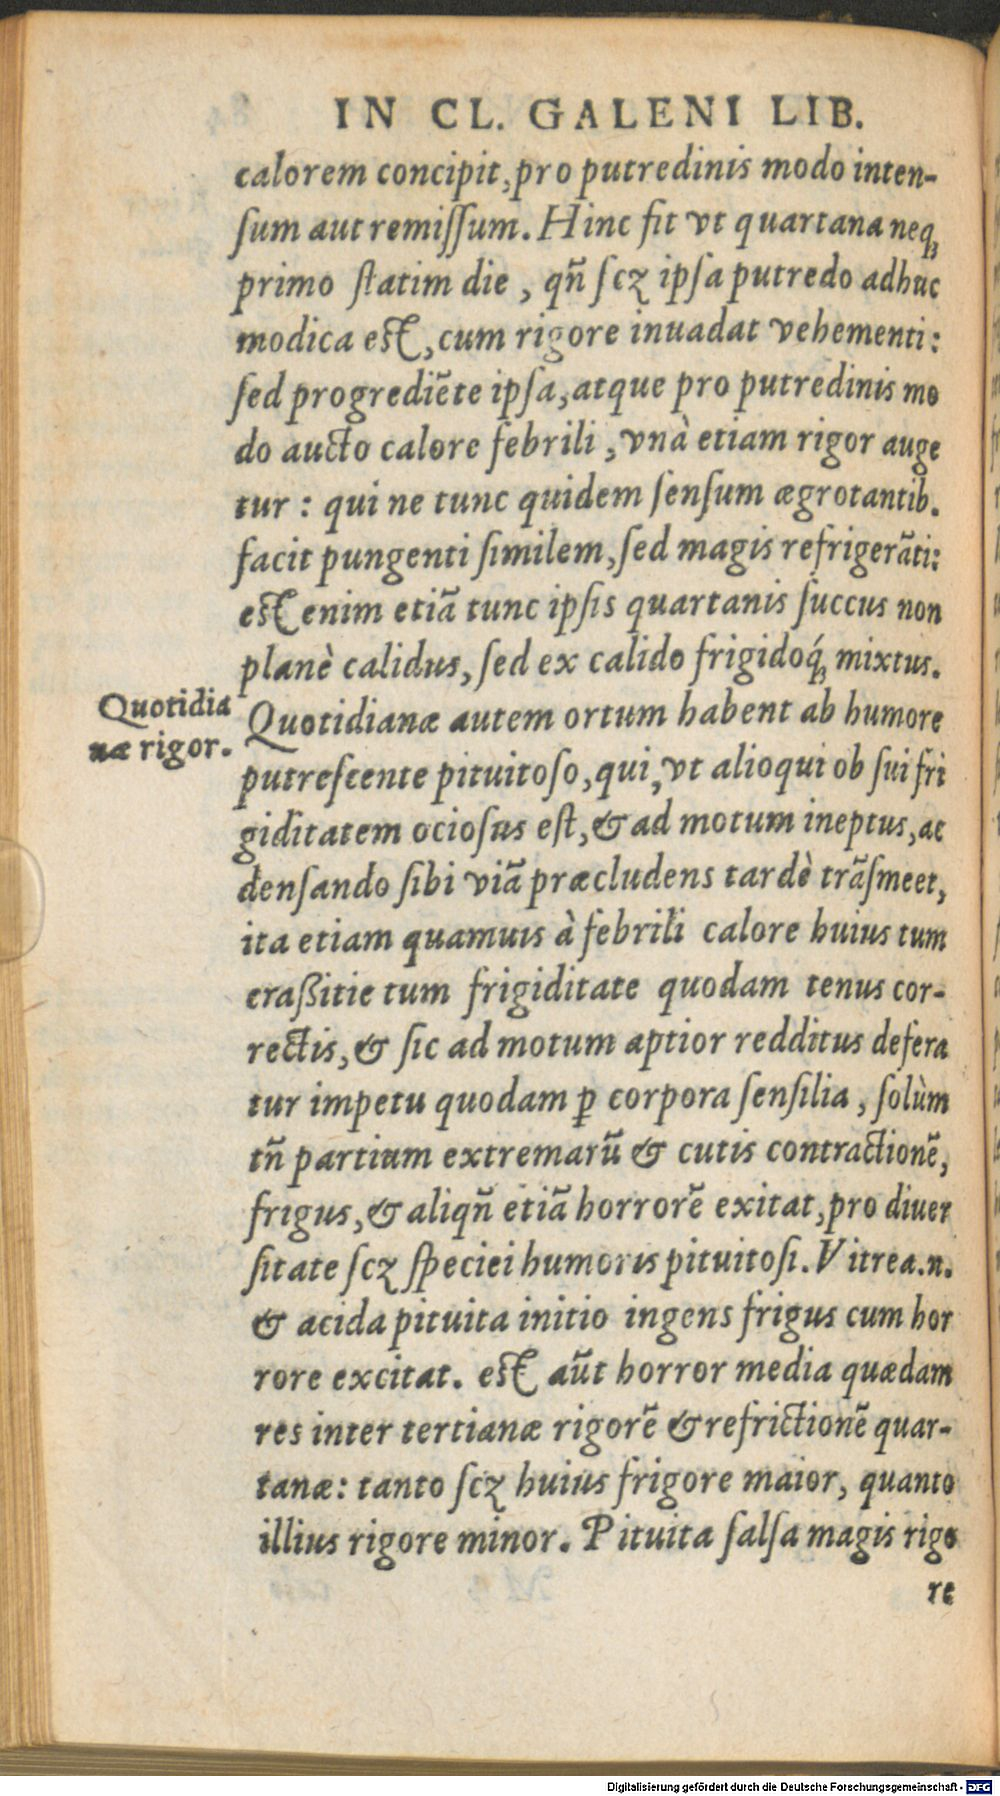 IN CL. GALENI LIB.
calorem concipit, pro putredinis modo inten-
ſum aut remiſſum. Hinc fit vt quartana neq;
primo ſtatim die, qn̄ ſcꝫ ipſa putredo adhuc
modica eſt, cum rigore inuadat vehementi:
ſed progrediēte ipſa, atque pro putredinis mo
do aucto calore febrili, vnà etiam rigor auge
tur: qui ne tunc quidem ſenſum ægrotantib.
facit pungenti ſimilem, ſed magis refrigerāti:
eſt enim etiā tunc ipſis quartanis ſuccus non
planè calidus, ſed ex calido frigidoq́; mixtus.
Quotidia
næ rigor.
Quotidianæ autem ortum habent ab humore
putreſcente pituitoſo, qui, vt alioqui ob ſui fri
giditatem ocioſus eſt, & ad motum ineptus, ac
denſando ſibi viā præcludens tardè trāſmeet,
ita etiam quamuis à febrili calore huius tum
craßitie tum frigiditate quodam tenus cor-
rectis, & ſic ad motum aptior redditus defera
tur impetu quodam ꝑ corpora ſenſilia, ſolùm
tn̄ partium extremarū & cutis contractionē,
frigus, & aliqn̄ etiā horrorē exitat, pro diuer
ſitate ſcꝫ ſpeciei humoris pituitoſi. Vitrea.n.
& acida pituita initio ingens frigus cum hor
rore excitat. eſt aūt horror media quædam
res inter tertianæ rigorē & refrictionē quar-
tanæ: tanto ſcꝫ huius frigore maior, quanto
illius rigore minor. Pituita ſalſa magis rigo
re
Digitalisierung gefördert durch die Deutsche Forschungsgemeinschaft - DFG